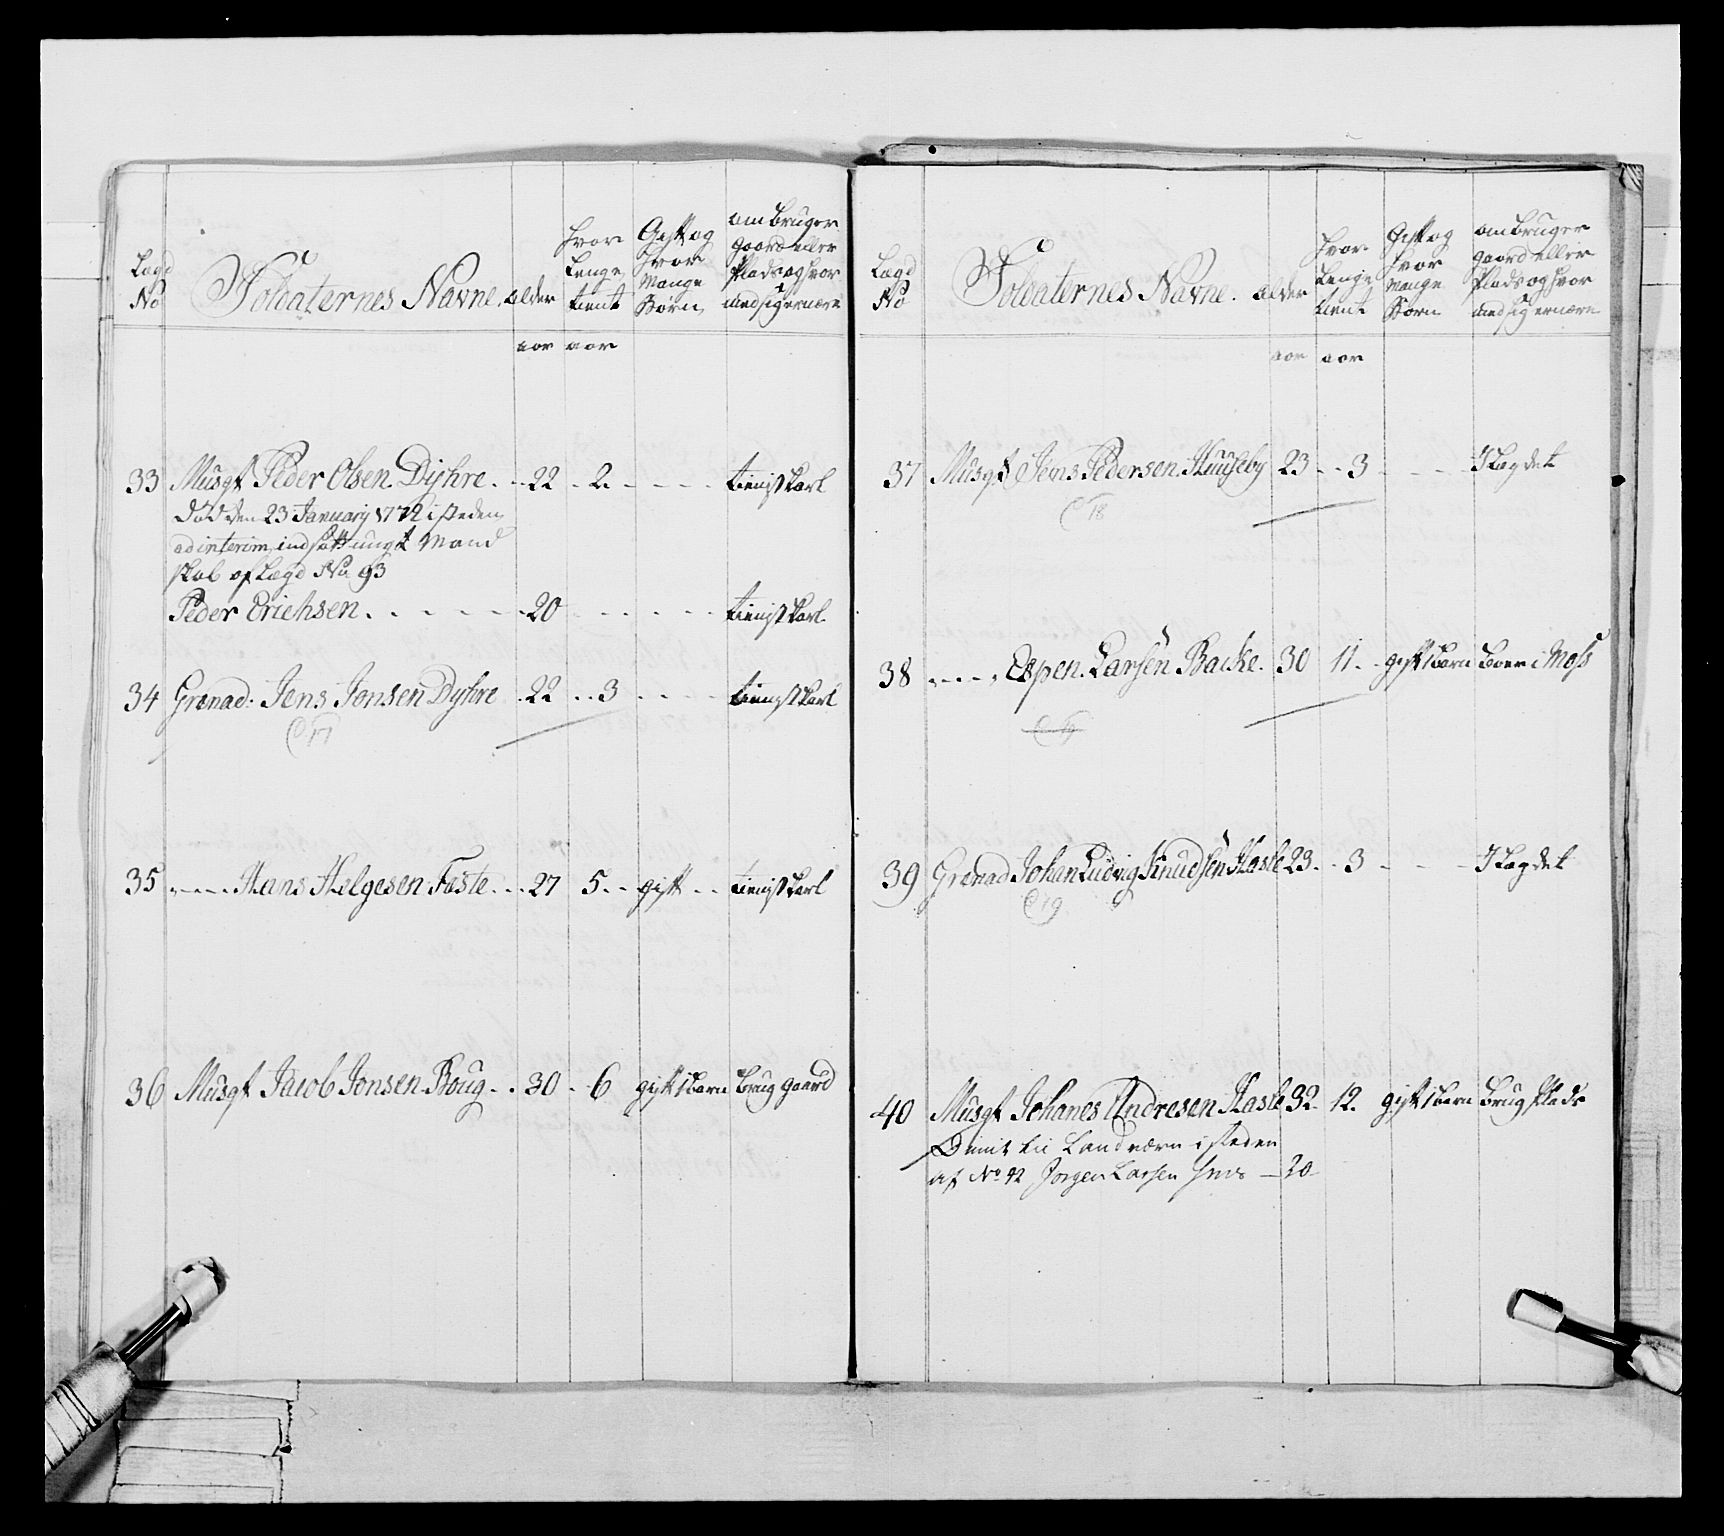 Lægd No
Soldaternes Navne.
alder
hvor Lenge tient
Gift og hvor Mange Børn
om bruger gaard eller Plads og hvor med sig ernære
aar aar
33 Musqt Peder Olsen Dyhre 22 2 tienistkarl
død den 23 January 1772 i steden
ad interim indsatt ungt Mand
skab af Lægd No 93
Peder Erichsen 20 tienistkarl
34 Grenad. Jens Jonsen Dyhre 22 3 tienistkarl
C 17
35 Hans Helgesen Feste 27 5 gift tienistkarl
36 Musqt Jacob Jonsen Roug 30 6 gift 1 barn brug gaard
Lægd No
Soldaternes Navne.
alder
hvor Lenge tient
Gift og hvor Mange Børn
om bruger gaard eller Plads og hvor med sig ernære
aar aar
37 Musqt Jens Pedersen Huuseby 23 3 I Lægdet
C 18
38 Espen Larsen Backe. 30 11 gift 1 barn boer i Moss
C 19
39 Grenad Johan Ludvig Knudsen Hasle 23 3 I Lægdet
C 19
40 Musqt Johanes Andresen Hasle 32 12 gift 1 barn brug Plads
Dimit til Landværn i steden
af No 42 Jørgen Larsen 20